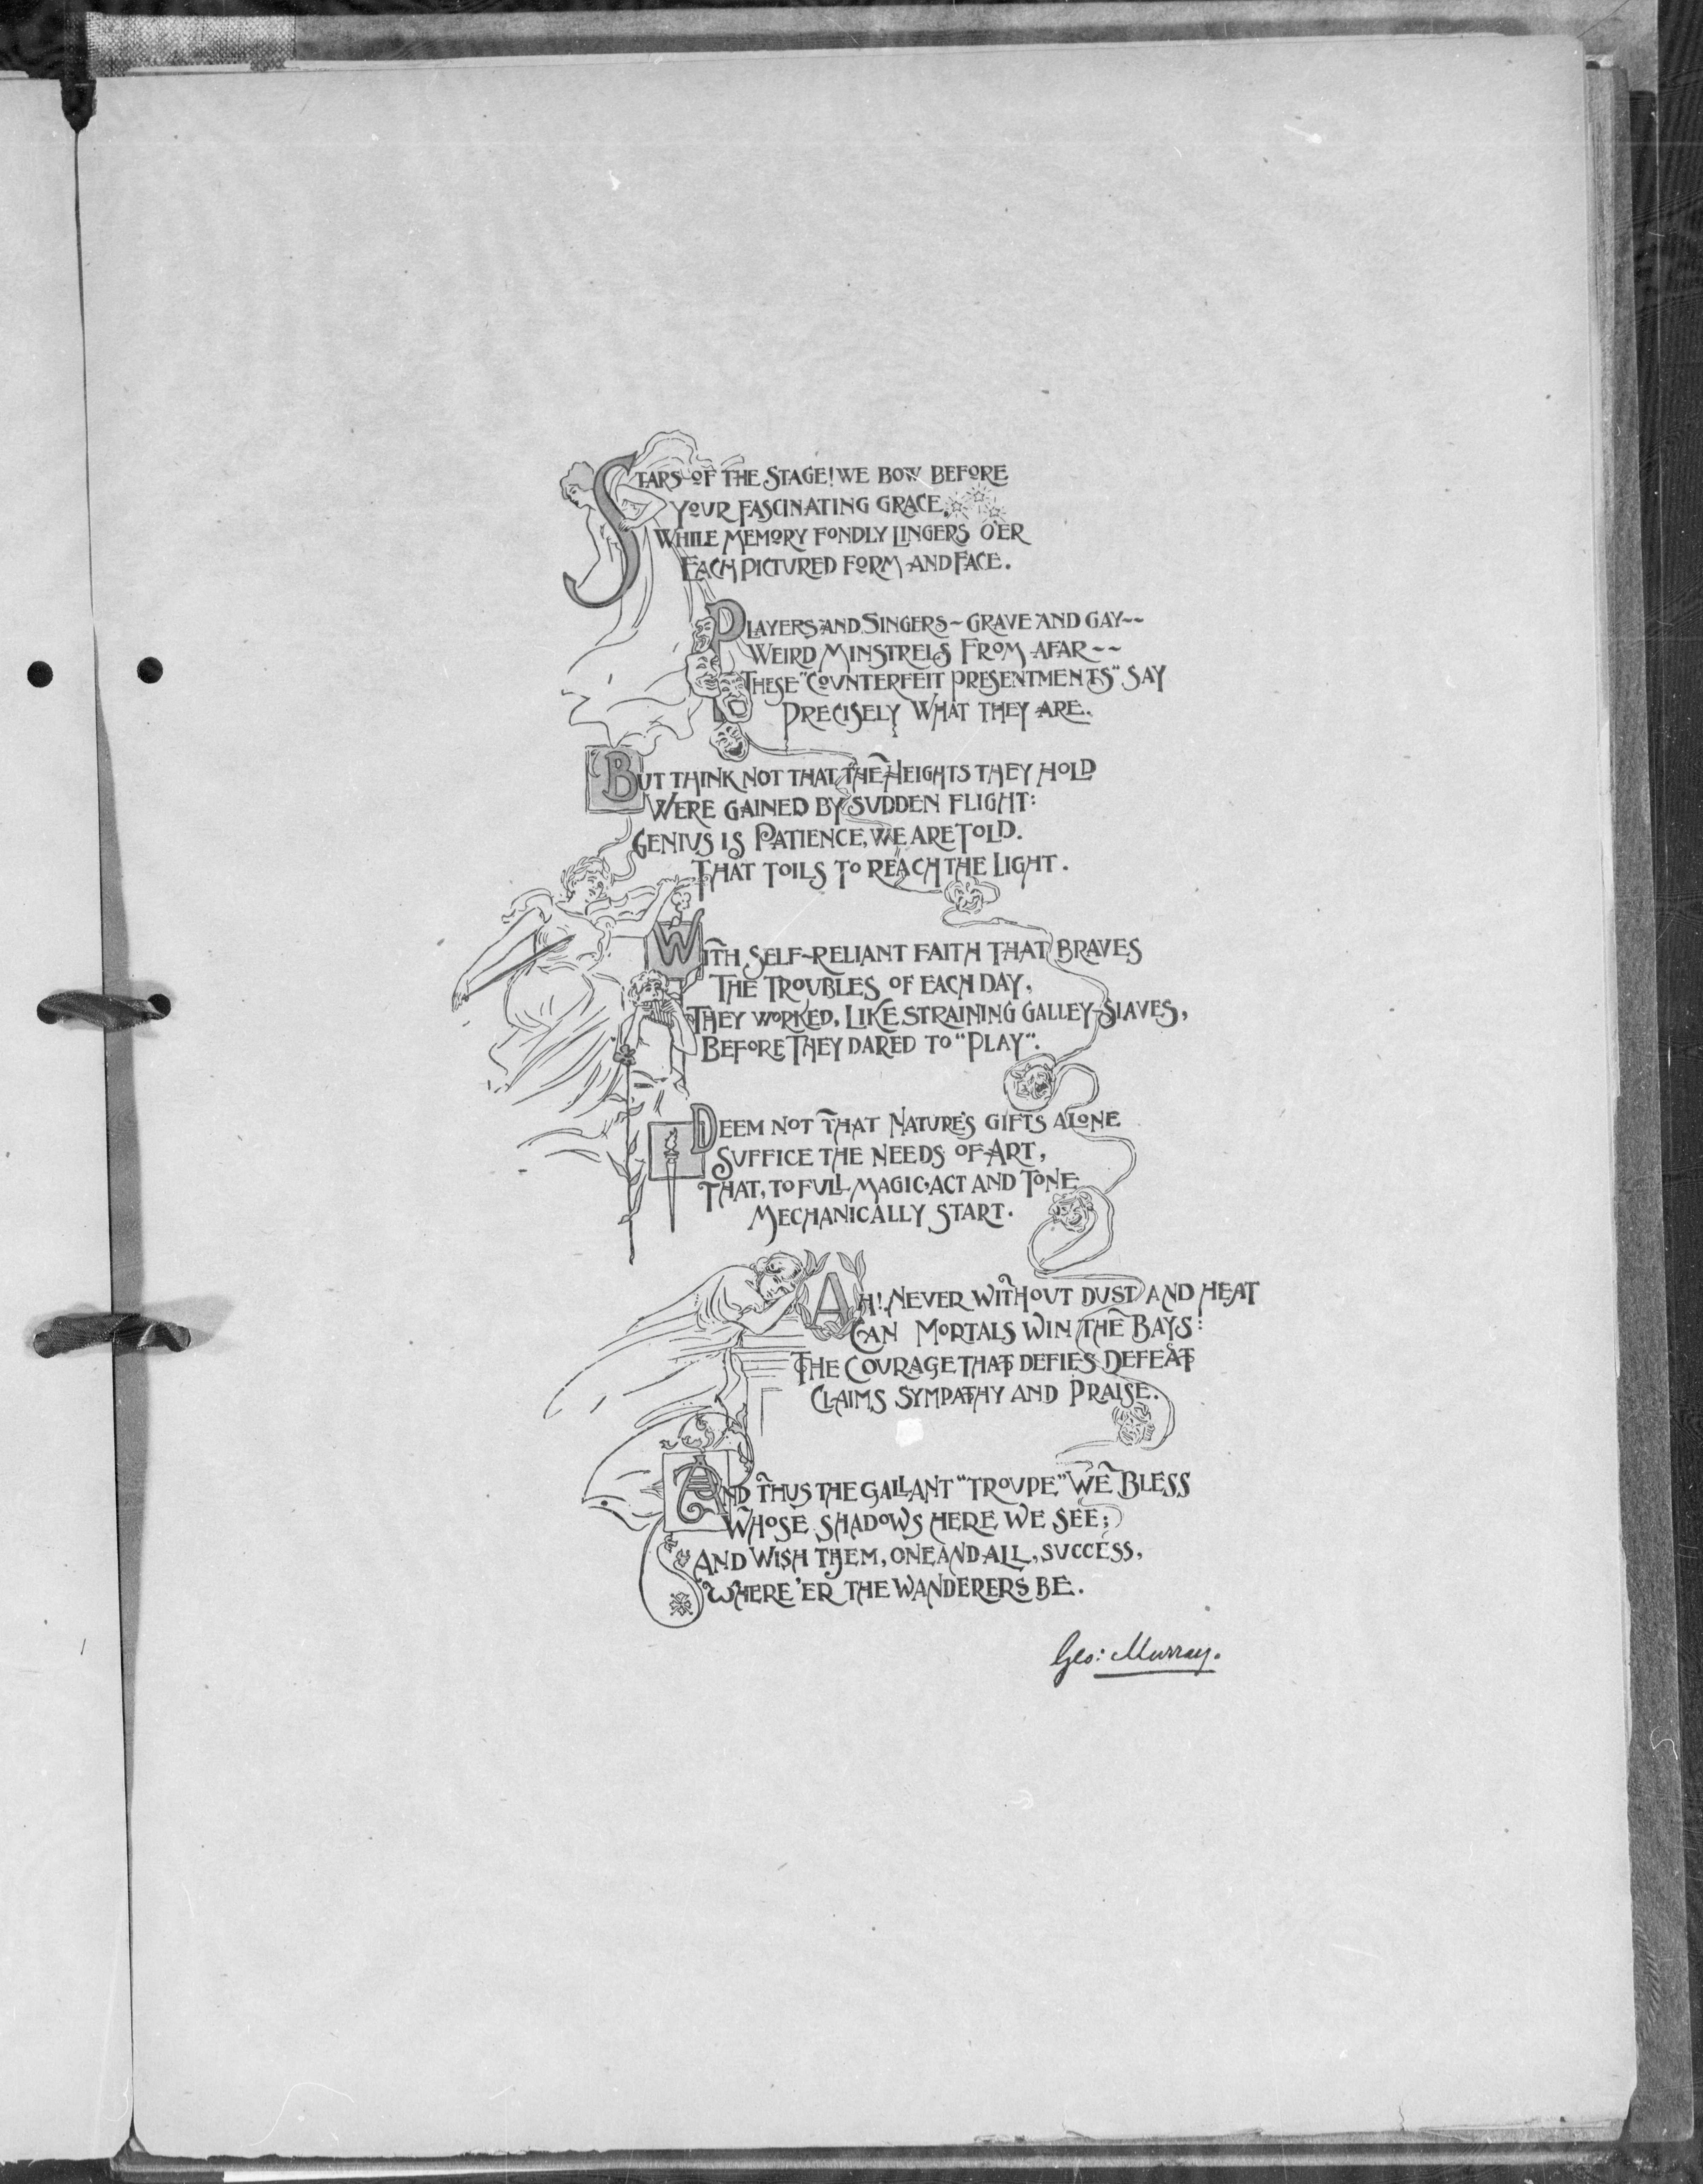 STARS OF THE STAGE! WE BOW BEFORE
YOUR FASCINATING GRACE,
WHILE MEMORY FONDLY LINGERS O'ER
EACH PICTURED FORM AND FACE.
PLAYERS AND SINGERS ~ GRAVE AND GAY --
WEIRD MINSTRELS FROM AFAR --
THESE "COUNTERFEIT PRESENTMENTS" SAY
PRECISELY WHAT THEY ARE.
BUT THINK NOT THAT THE HEIGHTS THEY HOLD
WERE GAINED BY SUDDEN FLIGHT:
GENIUS IS PATIENCE, WE ARE TOLD.
THAT TOILS TO REACH THE LIGHT.
WITH SELF-RELIANT FAITH THAT BRAVES
THE TROUBLES OF EACH DAY,
THEY WORKED, LIKE STRAINING GALLEY-SLAVES,
BEFORE THEY DARED TO "PLAY".
DEEM NOT THAT NATURE'S GIFTS ALONE
SUFFICE THE NEEDS OF ART,
THAT, TO FULL MAGIC, ACT AND TONE
MECHANICALLY START.
AH! NEVER WITHOUT DUST AND HEAT
CAN MORTALS WIN THE BAYS:
THE COURAGE THAT DEFIES DEFEAT
CLAIMS SYMPATHY AND PRAISE.
AND THUS THE GALLANT "TROUPE" WE BLESS
WHOSE SHADOWS HERE WE SEE;
AND WISH THEM, ONE AND ALL, SUCCESS,
WHERE'ER THE WANDERERS BE.
Geo: Murray.